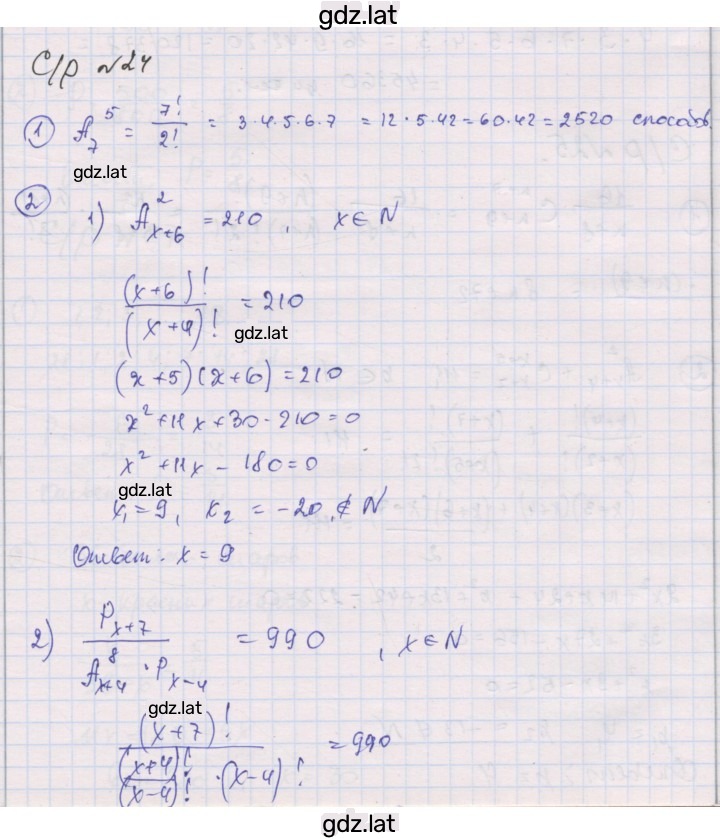 gdz.lat
С/р №24
1) A_7^5 = 7!/2! = 3·4·5·6·7 = 12·5·42 = 60·42 = 2520 способов
gdz.lat
2) 1) A_{x+6}^2 = 210, x ∈ N
(x+6)!/(x+4)! = 210
gdz.lat
(x+5)(x+6) = 210
x² + 11x + 30 - 210 = 0
x² + 11x - 180 = 0
gdz.lat
x₁ = 9, x₂ = -20 ∉ N
Ответ. x = 9
2) P_{x+7}/(A_{x+4}^8 · P_{x-4}) = 990, x ∈ N
gdz.lat
(x+7)!/((x+4)!/(x-4)! · (x-4)!) = 990
gdz.lat